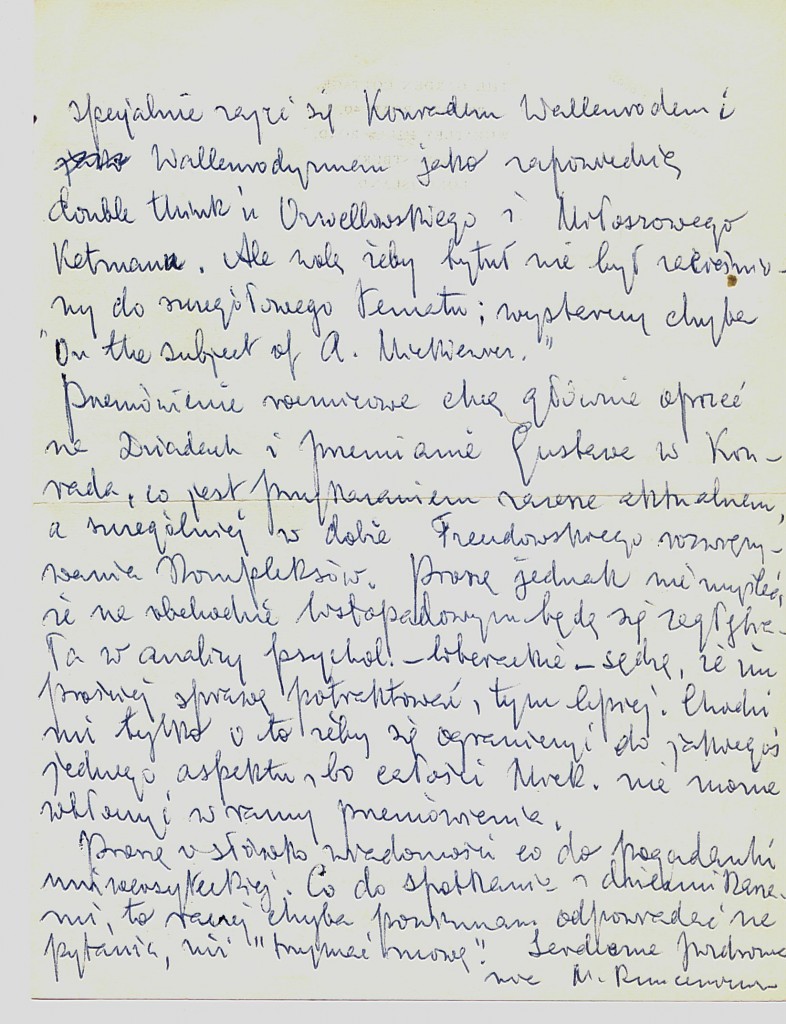 specjalnie zająć się Konradem Wallenrodem i
Wallenrodyzmem jako zapowiedzią
double think'u Orwellowskiego i Miłoszowego
Ketmanu. Ale wolę żeby tytuł nie był zacieśnio-
ny do szczegółowego tematu; wystarczy chyba
"On the subject of A. Mickiewicz."
Przemówienie rocznicowe chcę głównie oprzeć
na Dziadach i przemianie Gustawa w Kon-
rada, co jest przykazaniem zawsze aktualnem,
a szczególniej w dobie Freudowskiego rozwiązy-
wania kompleksów. Proszę jednak nie myśleć,
że na obchodzie listopadowym będę się zagłębia-
ła w analizy psychol. - literackie - sądzę, że im
prościej sprawę potraktować, tym lepiej. Chodzi
mi tylko o to żeby się ograniczyć do jakiegoś
jednego aspektu, bo całości Mick. nie można
wtłoczyć w ramy przemówienia.
Proszę o słówko wiadomości co do pogadanki
uniwersyteckiej. Co do spotkania z dziennikarza-
mi, to raczej chyba powinnam odpowiadać na
pytania, niż "trzymać mowę". Serdeczne pozdrowie
nia M.